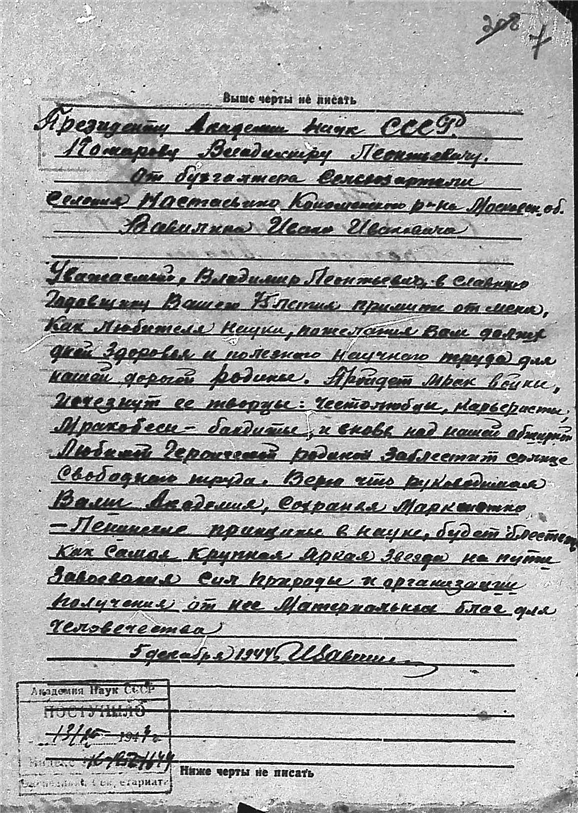 308 7
Выше черты не писать
Президенту Академии Наук СССР.
Комарову Владимиру Леонтьевичу.
От бухгалтера Сельхозартели
Селения Настасьино Коломенского р-на Московск. об.
Вавилина Ивана Ивановича
Уважаемый, Владимир Леонтьевич в славную
Годовщину Вашего 75 летия примите от меня,
Как Любителя Науки, пожелания Вам долгих
дней Здоровья и полезного Научного труда для
нашей дорогой родины. Пройдет мрак войны,
исчезнут ее творцы: честолюбцы, карьеристы,
Мракобесы – бандиты, и вновь над нашей обширной
Любимой Героической родиной Заблестит солнце
Свободного труда. Верю что руководимая
Вами Академия, сохраняя Марксистко
– Ленинские принципы в науке, будет блестеть
как самая крупная Яркая Звезда на пути
Завоевания сил природы и организации
получения от нее Материальных благ для
Человечества
5 декабря 1944
Академия Наук СССР
ПОСТУПИЛО
194
Индекс
Ниже черты не писать